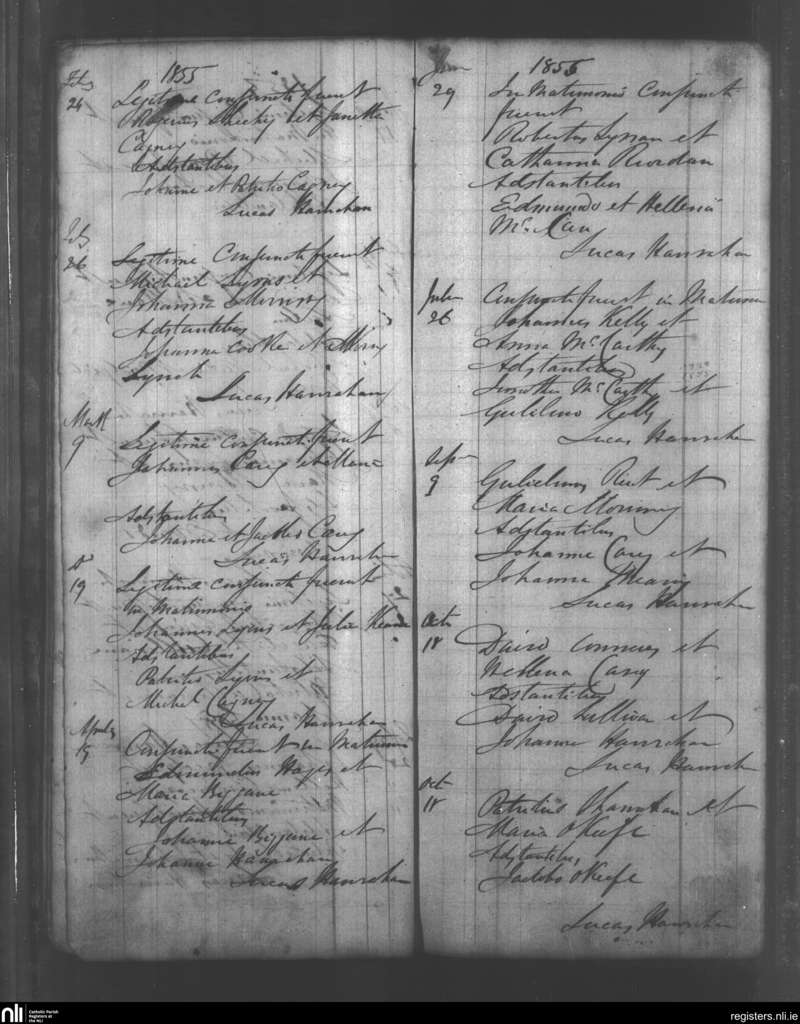 1855
Feb
24
Legitime conjuncti fuerunt
Sheehy et Janetta
Cagney
Adstantibus
Johanne et Patritio Cagney
Lucas Hanrahan
Feb
26
Legitime Conjuncti fuerunt
Michael Lyons et
Johanna
Adstantibus
Johanna Cooke et Mary
Lynch
Lucas Hanrahan
March
9
Legitime conjuncti fuerunt
Johannes Carey et Ellena
Adstantibus
Johanne et Jacobo Carey
Lucas Hanrahan
Do
19
Legitime conjuncti fuerunt
in Matrimonio
Johannes Lyons et Julia Keane
Adstantibus
Patritio Lyons et
Michel Cagney
Lucas Hanrahan
April
15
Conjuncti fuerunt in Matrimonio
Edmundus Hayes et
Maria Biggane
Adstantibus
Johanne Biggane et
Johanne Hanrahan
Lucas Hanrahan
1855
June
29
In Matrimonio Conjuncti
fuerunt
Robertus et
Catharina Riordan
Adstantibus
Edmundo et Hellena
Mc
Lucas Hanrahan
July
26
Conjuncti fuerunt in Matrimon
Johannes Kelly et
Anna McCarthy
Adstantibus
Timotheo McCarthy et
Gulielmo Kelly
Lucas Hanrahan
Sept
9
Gulielmus et
Maria
Adstantibus
Johanne Carey et
Johanna Meany
Lucas Hanrahan
Octr
18
David Connors et
Hellena Carey
Adstantibus
David Sullivan et
Johanne Hanrahan
Lucas Hanrahan
Oct
18
Patritius Hanrahan et
Maria OKeefe
Adstantibus
Jacobo OKeefe
Lucas Hanrahan
nli
Catholic Parish
Registers at
the NLI
registers.nli.ie